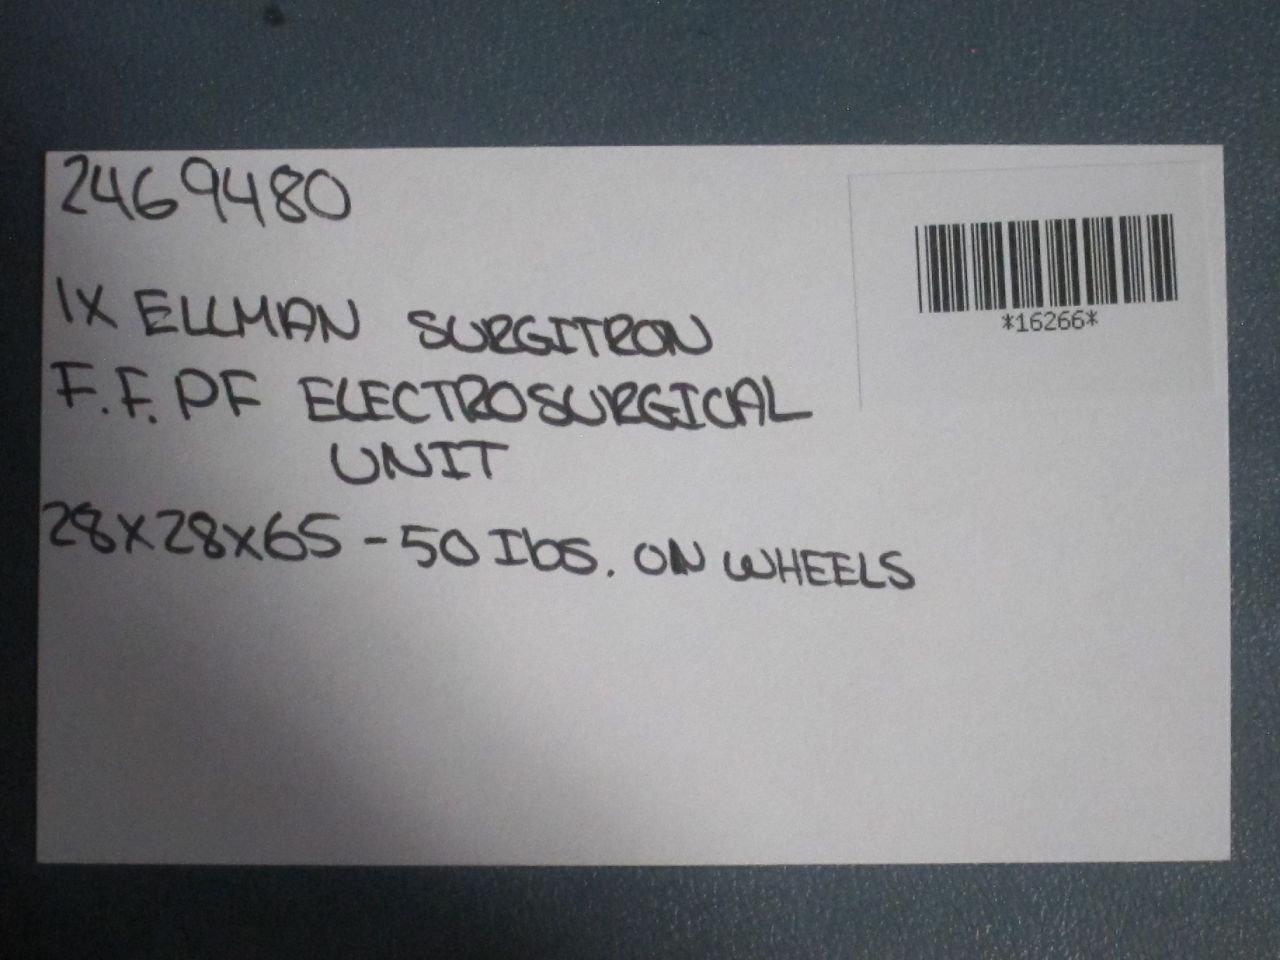 2469480
*16266*
1X ELLMAN SURGITRON
F.F.PF ELECTROSURGICAL
UNIT
28X28X65 - 50 lbs. ON WHEELS